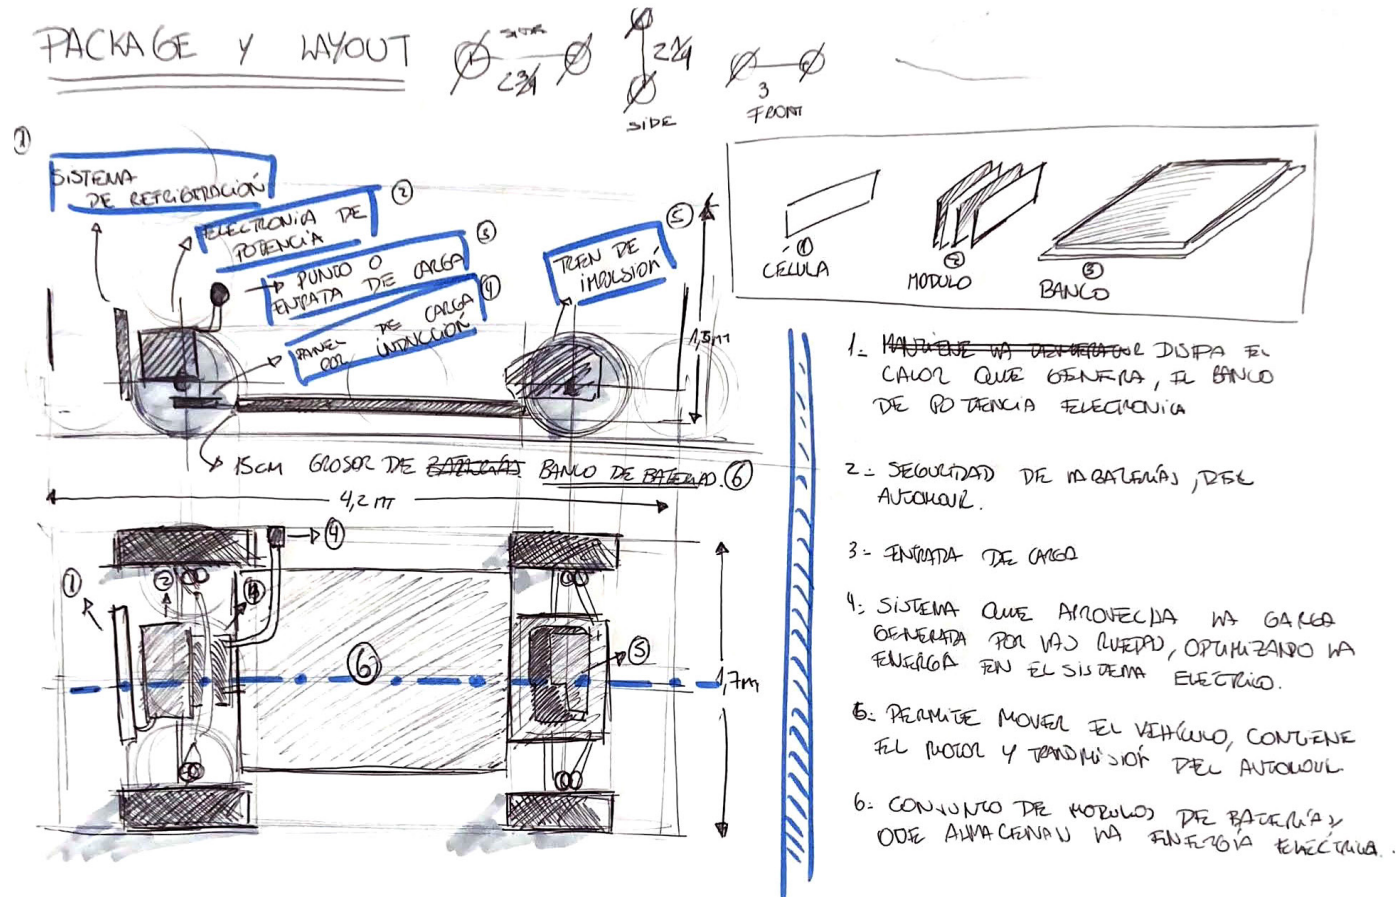 PACKAGE Y LAYOUT
SIDE
2 3/4
2 1/4
SIDE
3
FRONT
1
SISTEMA
DE REFRIGERACIÓN
ELECTRONIA DE
POTENCIA
2
PUNTO O
ENTRATA DE CARGA
3
PANEL DE CARGA
POR INDUCCIÓN
4
TREN DE
IMPULSIÓN
5
1,5 MT
15CM GROSOR DE BATERÍAS BANCO DE BATERIAS. 6
4,2 MT
CÉLULA
1
MODULO
2
BANCO
3
4
1
2
6
5
1,7m
1.- DISIPA EL
CALOR QUE GENERA, EL BANCO
DE POTENCIA ELECTRONICA
2.- SEGURIDAD DE BATERÍAS, DEL
AUTOMOVIL.
3.- ENTRADA DE CARGA
4.- SISTEMA QUE APROVECHA LA CARGA
GENERADA POR LAS RUEDAS, OPTIMIZANDO LA
ENERGÍA EN EL SISTEMA ELECTRICO.
5.- PERMITE MOVER EL VEHÍCULO, CONTIENE
EL MOTOR Y TRANSMISIÓN DEL AUTOMOVIL
6.- CONJUNTO DE MODULOS DE BATERÍAS
QUE ALMACENAN LA ENERGÍA ELÉCTRICA.